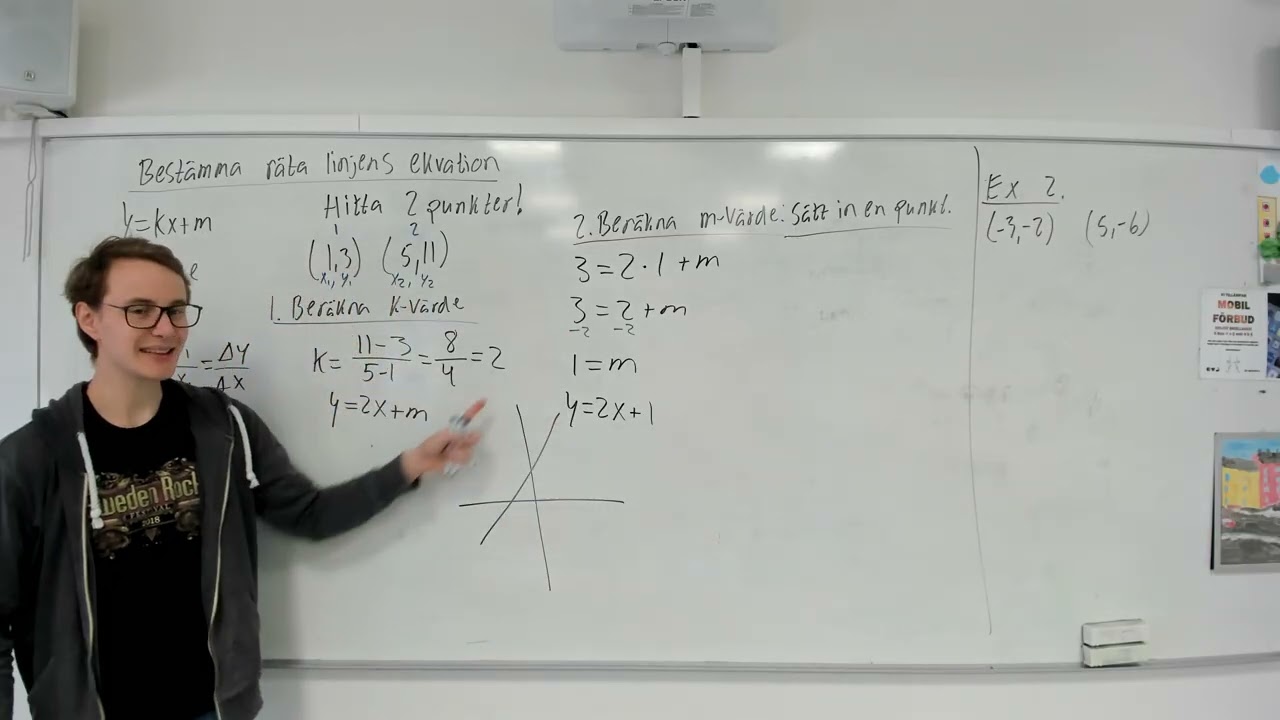 Bestämma räta linjens ekvation
y=kx+m
Hitta 2 punkter!
1 2
(1,3) (5,11)
x₁, y₁ x₂, y₂
1. Beräkna k-värde
= ΔY/ΔX
k = (11-3)/(5-1) = 8/4 = 2
y=2x+m
2. Beräkna m-värde: Sätt in en punkt.
3=2·1+m
3=2+m
-2 -2
1=m
y=2x+1
Ex 2.
(-3,-2) (5,-6)
MOBIL
FÖRBUD
Sweden Rock
FESTIVAL
2018